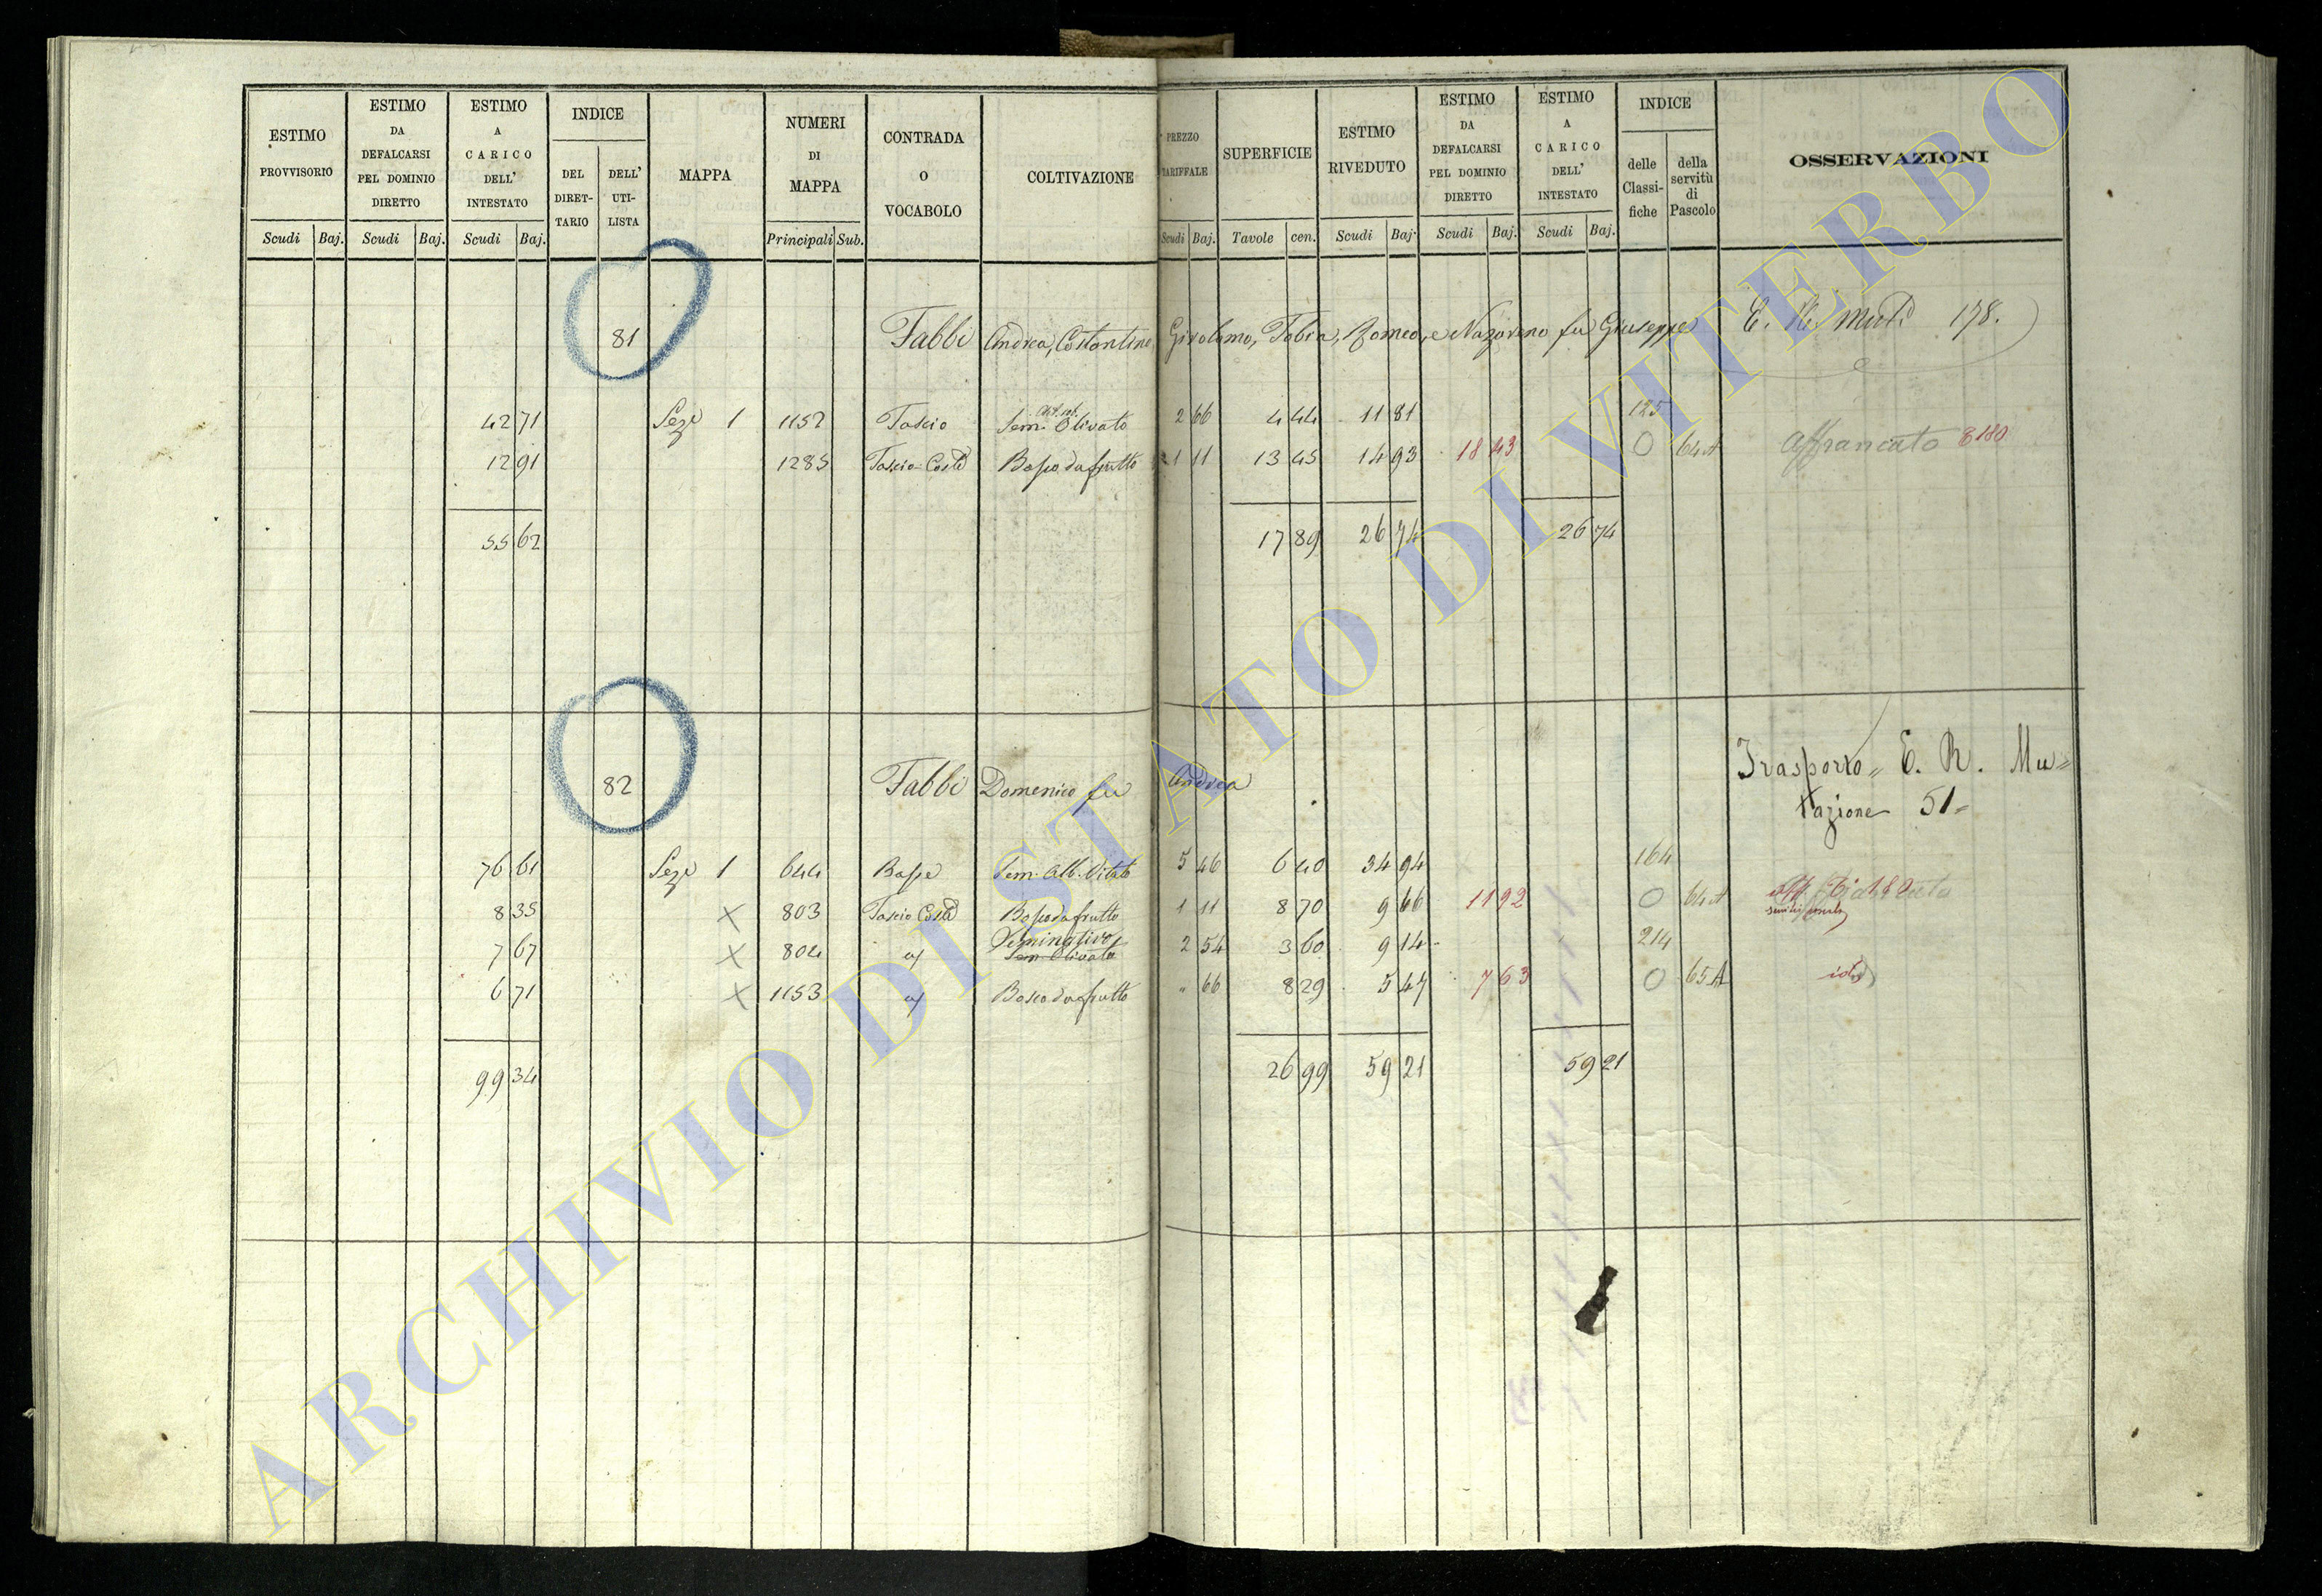 ESTIMO PROVVISORIO Scudi Baj.
ESTIMO DA DEFALCARSI PEL DOMINIO DIRETTO Scudi Baj.
ESTIMO A CARICO DELL' INTESTATO Scudi Baj.
INDICE DEL DIRET-TARIO DELL' UTI-LISTA
MAPPA
NUMERI DI MAPPA Principali Sub.
CONTRADA O VOCABOLO
COLTIVAZIONE
PREZZO TARIFFALE Scudi Baj.
SUPERFICIE Tavole cen.
ESTIMO RIVEDUTO Scudi Baj.
ESTIMO DA DEFALCARSI PEL DOMINIO DIRETTO Scudi Baj.
ESTIMO A CARICO DELL' INTESTATO Scudi Baj.
INDICE delle Classi-fiche della servitù di Pascolo
OSSERVAZIONI
81 Fabbi Andrea, Costantino, Girolamo, Tobia, Romeo, e Nazareno fu Giuseppe 178.
42 71 Sezе 1 1152 Fascio Sem. Olivato 2 66 4 44 11 81 125
12 91 1285 Fascio Costa Bosco da frutto 1 11 13 45 14 93 18 43 0 64A Affrancato 8180
55 62 17 89 26 74 26 74
82 Fabbi Domenico fu Andrea Trasporto E. R. Mu=
tazione 51=
76 61 Seze 1 644 Basse Sem. Alb. Vitato 5 46 6 40 34 94 164
8 35 X 803 Fascio Costa Bosco da frutto 1 11 8 70 9 66 11 92 0 64A
7 67 X 804 Seminativo Sem Olivato 2 54 3 60 9 14 214
6 71 X 1153 Bosco da frutto " 66 8 29 5 47 7 63 0 65A
99 34 26 99 59 21 59 21
ARCHIVIO DI STATO DI VITERBO